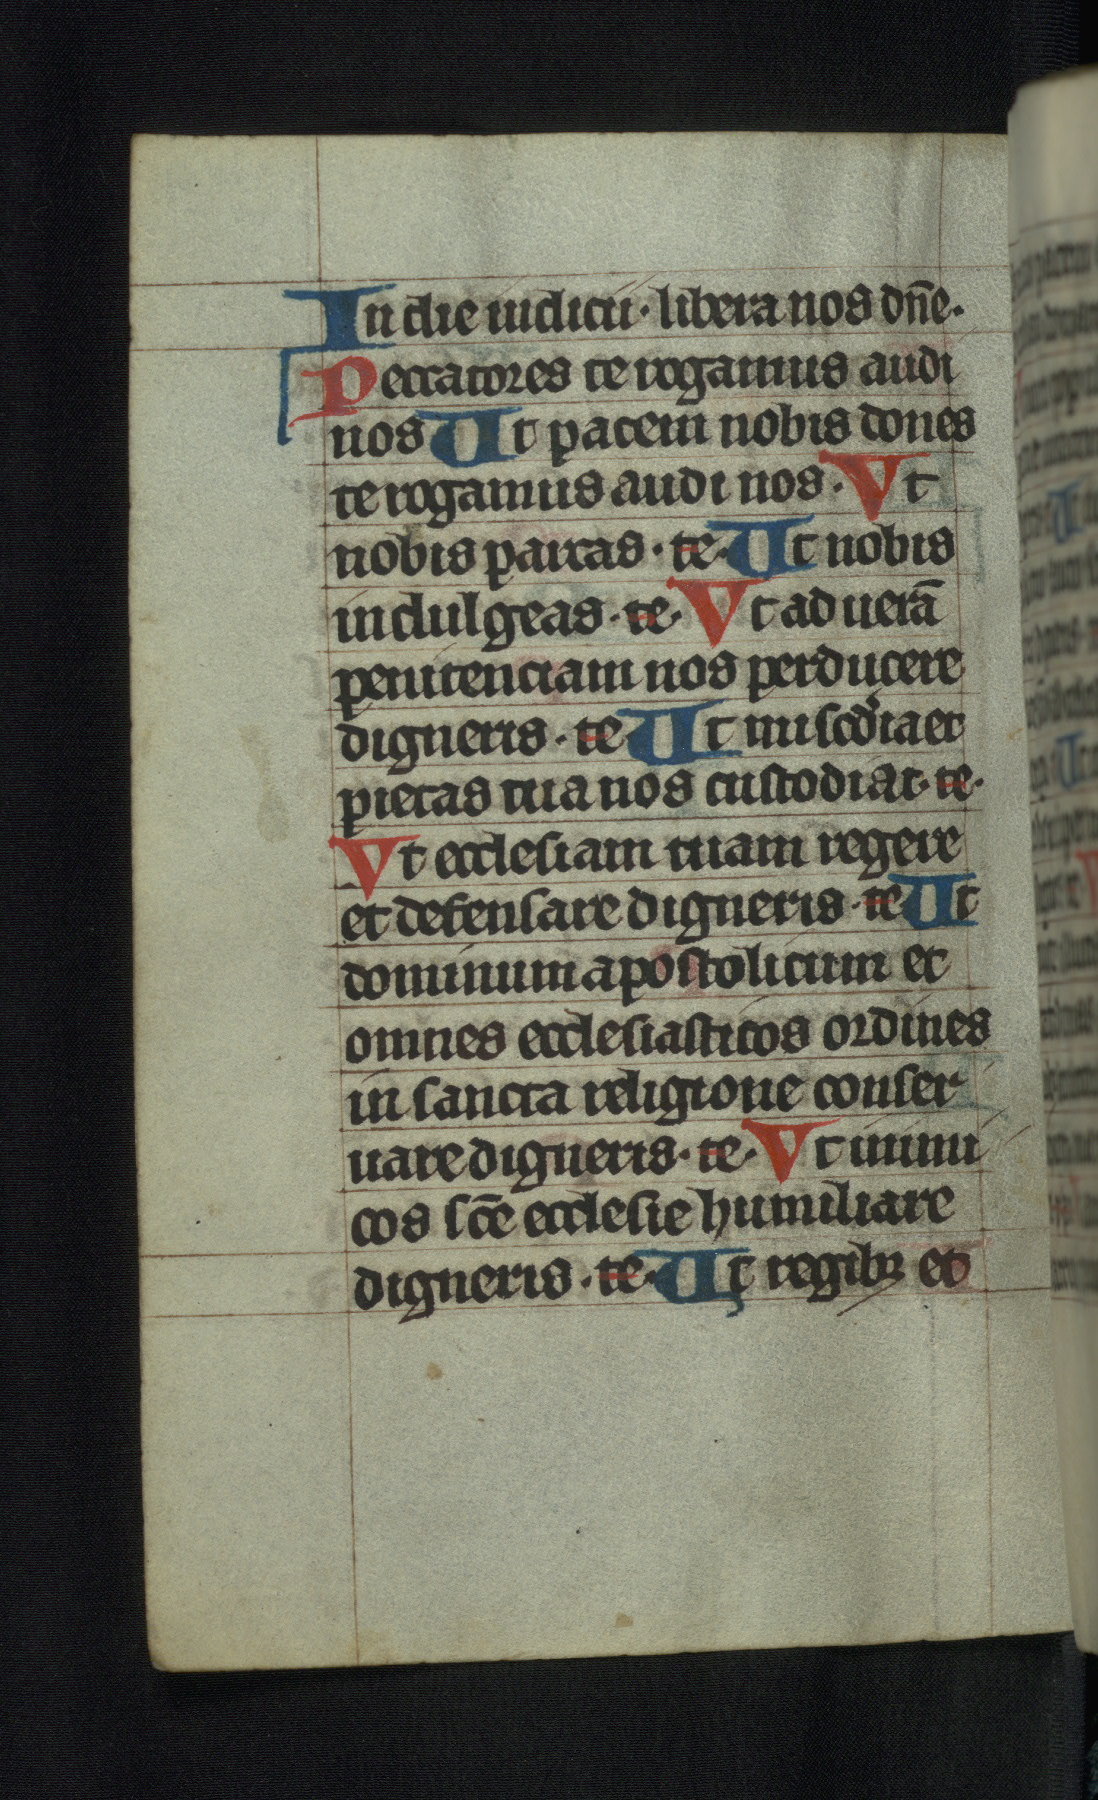 In die iudicii · libera nos dn̄e.
Peccatores te rogamus audi
nos Ut pacem nobis dones
te rogamus audi nos · Vt
nobis parcas · te · Ut nobis
indulgeas · te · Vt ad uerā
penitenciam nos perducere
digneris · te Ut miscdꝛ̄ia et
pietas tua nos custodiat · te ·
Vt ecclesiam tuam regere
et defensare digneris · te Ut
dominum apostolicum et
omnes ecclesiasticos ordines
in sancta religione conser
uare digneris · te · Vt inimi
cos sc̄e ecclesie humiliare
digneris · te · Ut regibꝫ et